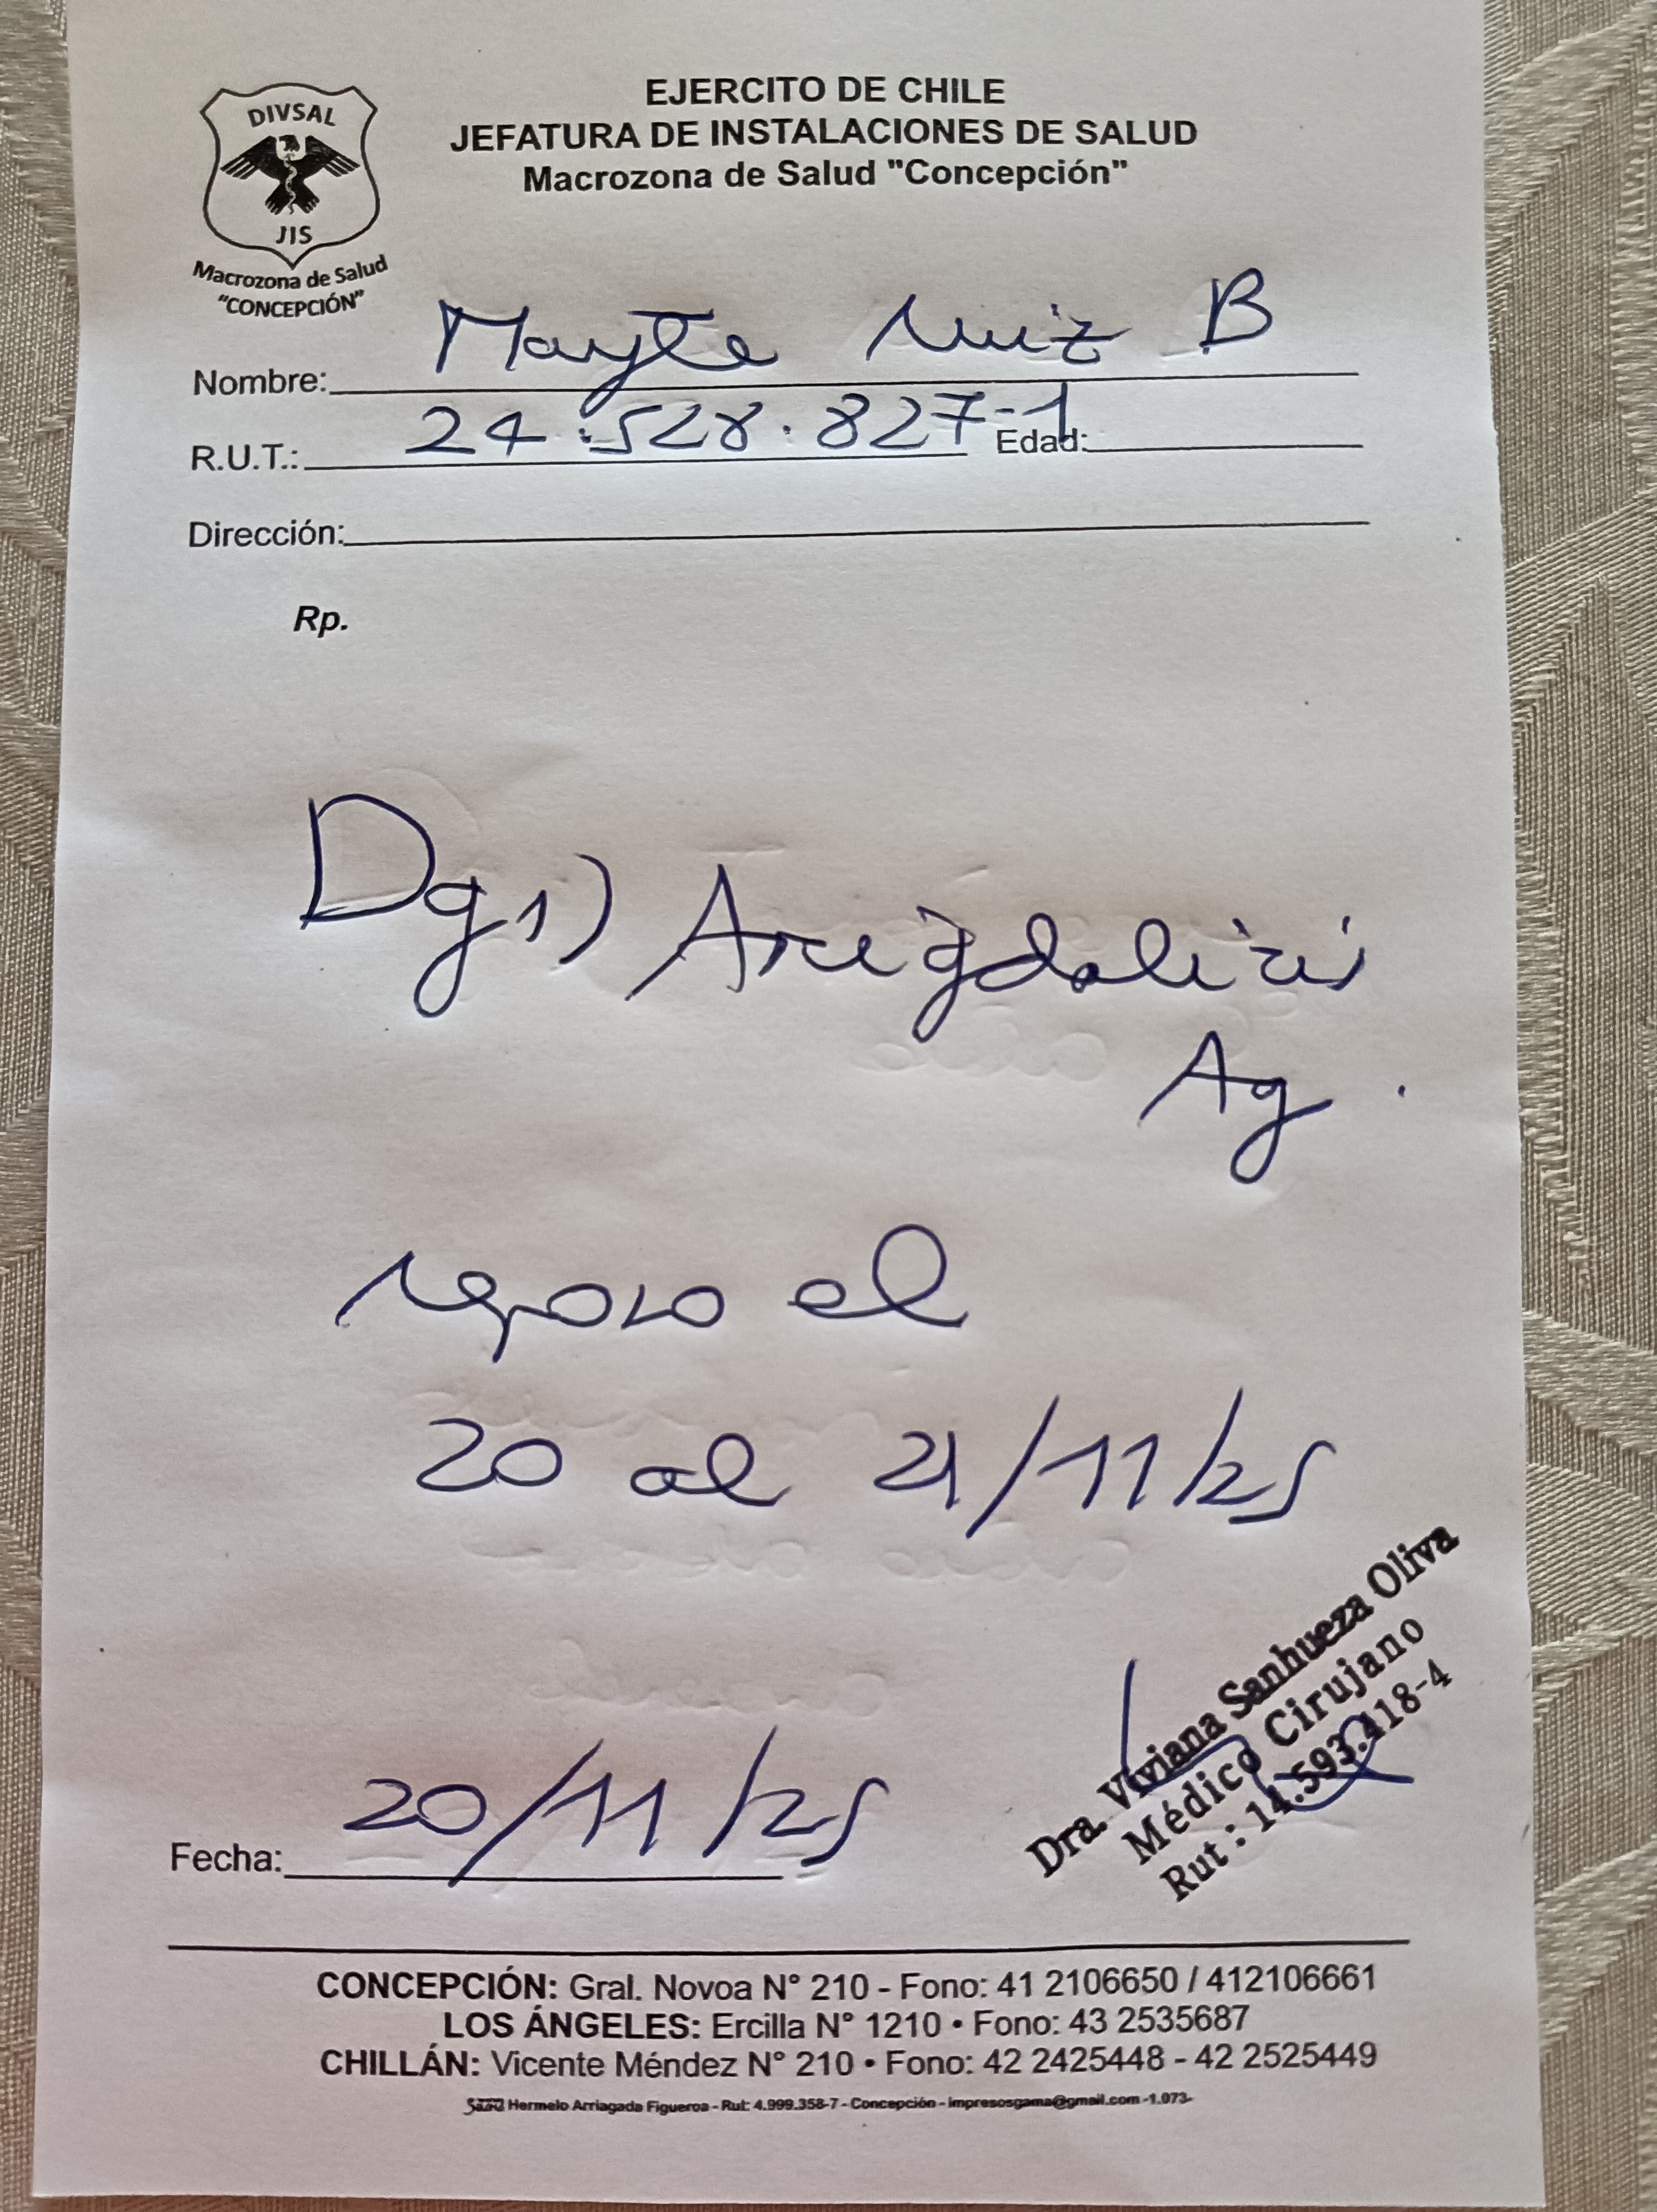 DIVSAL
JIS
Macrozona de Salud
"CONCEPCIÓN"
EJERCITO DE CHILE
JEFATURA DE INSTALACIONES DE SALUD
Macrozona de Salud "Concepción"
Nombre: Mayte Ruiz B
R.U.T.: 24.528.827-1 Edad:
Dirección:
Rp.
Dg 1) Amigdalitis
Ag.
reposo el
20 al 21/11/25
Dra. Viviana Sanhueza Oliva
Médico Cirujano
Rut : 14.593.418-4
Fecha: 20/11/25
CONCEPCIÓN: Gral. Novoa N° 210 - Fono: 41 2106650 / 412106661
LOS ÁNGELES: Ercilla N° 1210 • Fono: 43 2535687
CHILLÁN: Vicente Méndez N° 210 • Fono: 42 2425448 - 42 2525449
Hermelo Arriagada Figueroa - Rut: 4.999.358-7 - Concepción - impresosgama@gmail.com -1.073-